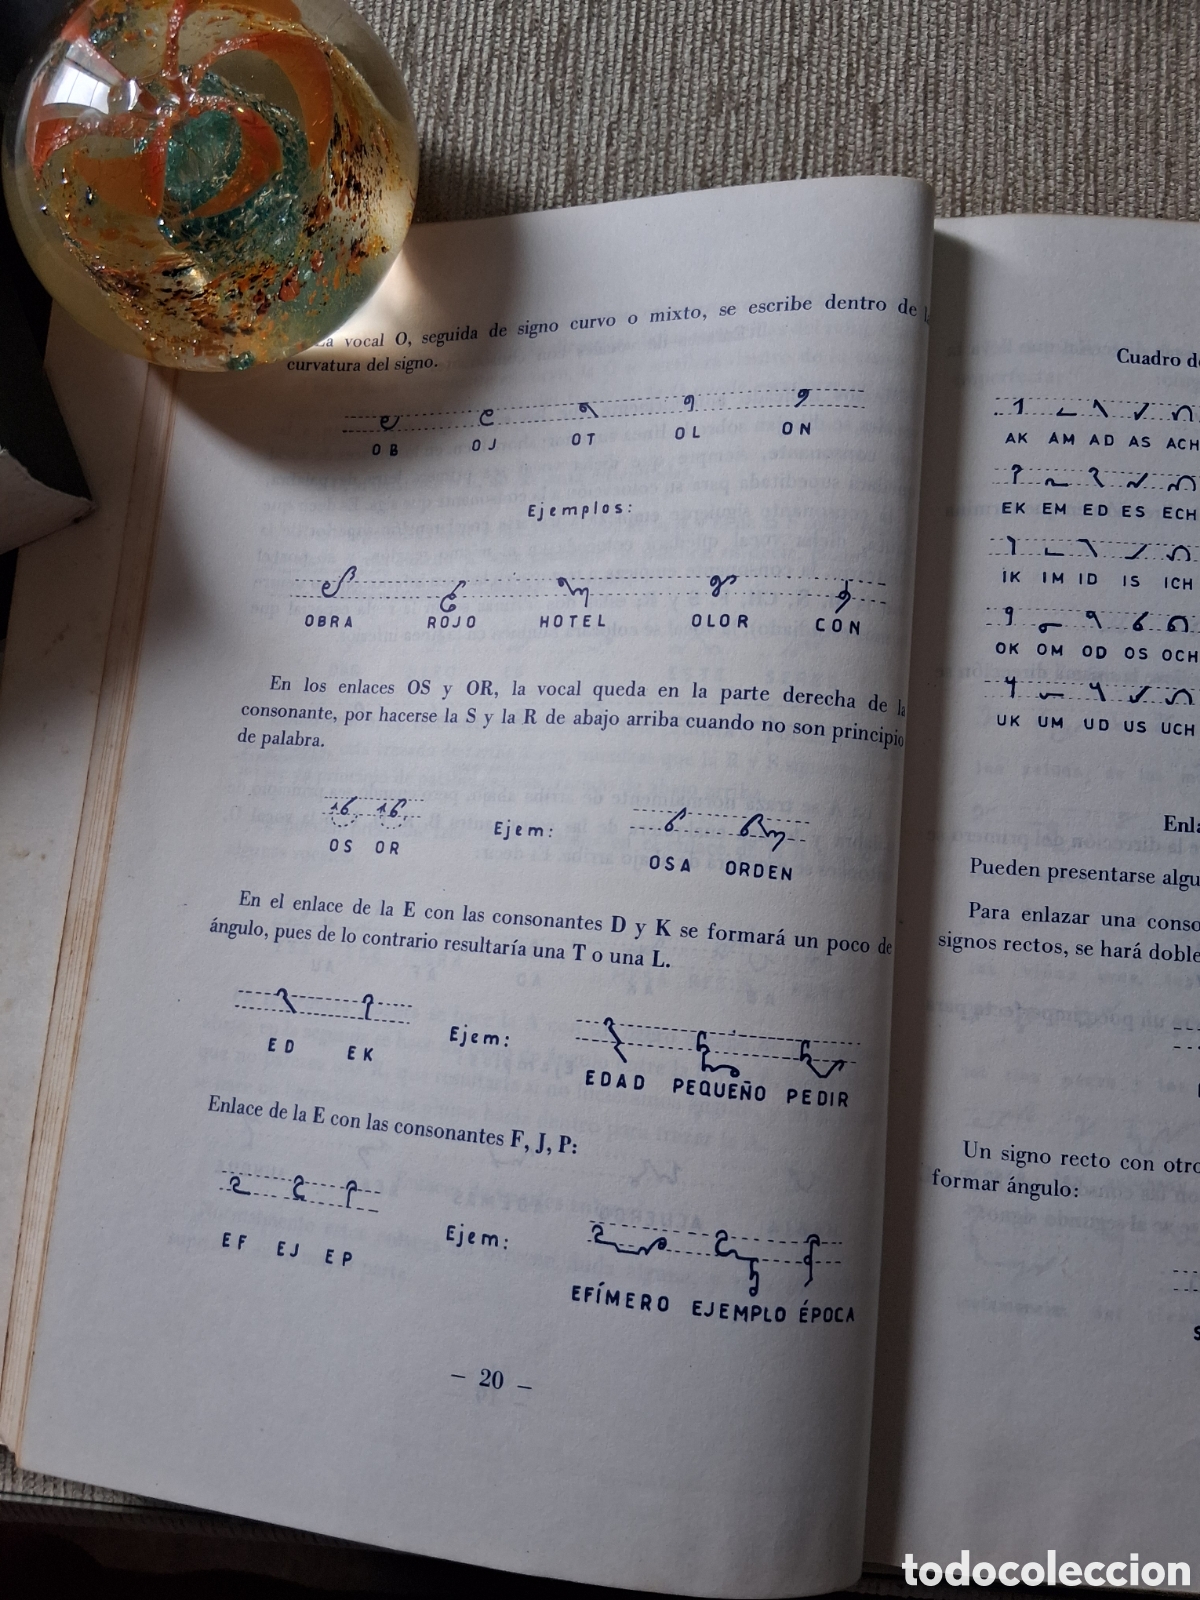 La vocal O, seguida de signo curvo o mixto, se escribe dentro de
curvatura del signo.
OB OJ OT OL ON
Ejemplos:
OBRA ROJO HOTEL OLOR CON
En los enlaces OS y OR, la vocal queda en la parte derecha de la
consonante, por hacerse la S y la R de abajo arriba cuando no son principio
de palabra.
OS OR Ejem: OSA ORDEN
En el enlace de la E con las consonantes D y K se formará un poco de
ángulo, pues de lo contrario resultaría una T o una L.
ED EK Ejem: EDAD PEQUEÑO PEDIR
Enlace de la E con las consonantes F, J, P:
EF EJ EP Ejem: EFÍMERO EJEMPLO ÉPOCA
— 20 —
Cuadro de
AK AM AD AS ACH
EK EM ED ES ECH
IK IM ID IS ICH
OK OM OD OS OCH
UK UM UD US UCH
Pueden presentarse algu
Para enlazar una conso
signos rectos, se hará doble
Un signo recto con otro
formar ángulo:
todocoleccion